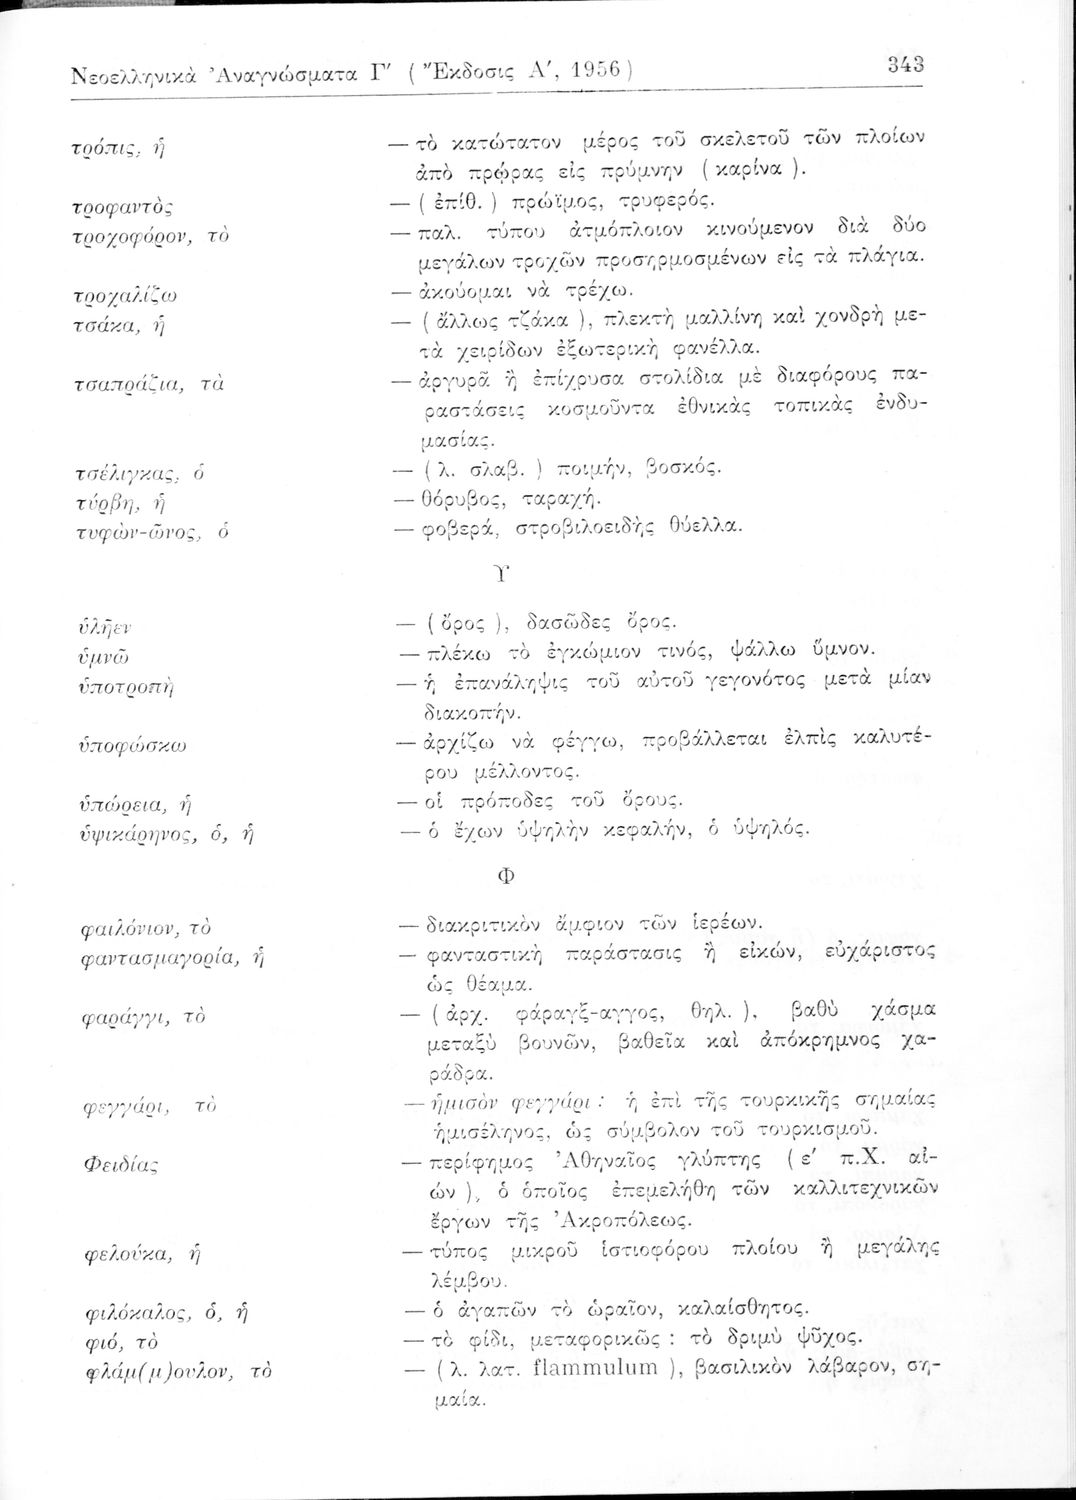 Νεοελληνικὰ Ἀναγνώσματα Γ′ ( Ἔκδοσις Α′, 1956 ) 343
τρόπις, ἡ — τὸ κατώτατον μέρος τοῦ σκελετοῦ τῶν πλοίων
ἀπὸ πρῴρας εἰς πρύμνην ( καρίνα ).
τροφαντὸς — ( ἐπίθ. ) πρώϊμος, τρυφερός.
τροχοφόρον, τὸ — παλ. τύπου ἀτμόπλοιον κινούμενον διὰ δύο
μεγάλων τροχῶν προσηρμοσμένων εἰς τὰ πλάγια.
τροχαλίζω — ἀκούομαι νὰ τρέχω.
τσάκα, ἡ — ( ἄλλως τζάκα ), πλεκτὴ μαλλίνη καὶ χονδρὴ με-
τὰ χειρίδων ἐξωτερικὴ φανέλλα.
τσαπράζια, τὰ — ἀργυρᾶ ἢ ἐπίχρυσα στολίδια μὲ διαφόρους πα-
ραστάσεις κοσμοῦντα ἐθνικὰς τοπικὰς ἐνδυ-
μασίας.
τσέλιγκας, ὁ — ( λ. σλαβ. ) ποιμήν, βοσκός.
τύρβη, ἡ — θόρυβος, ταραχή.
τυφὼν-ῶνος, ὁ — φοβερά, στροβιλοειδὴς θύελλα.
Υ
ὑλῆεν — ( ὄρος ), δασῶδες ὄρος.
ὑμνῶ — πλέκω τὸ ἐγκώμιον τινός, ψάλλω ὕμνον.
ὑποτροπὴ — ἡ ἐπανάληψις τοῦ αὐτοῦ γεγονότος μετὰ μίαν
διακοπήν.
ὑποφώσκω — ἀρχίζω νὰ φέγγω, προβάλλεται ἐλπὶς καλυτέ-
ρου μέλλοντος.
ὑπώρεια, ἡ — οἱ πρόποδες τοῦ ὄρους.
ὑψικάρηνος, ὁ, ἡ — ὁ ἔχων ὑψηλὴν κεφαλήν, ὁ ὑψηλός.
Φ
φαιλόνιον, τὸ — διακριτικὸν ἄμφιον τῶν ἱερέων.
φαντασμαγορία, ἡ — φανταστικὴ παράστασις ἢ εἰκών, εὐχάριστος
ὡς θέαμα.
φαράγγι, τὸ — ( ἀρχ. φάραγξ-αγγος, θηλ. ), βαθὺ χάσμα
μεταξὺ βουνῶν, βαθεῖα καὶ ἀπόκρημνος χα-
ράδρα.
φεγγάρι, τὸ — ἡμισὸν φεγγάρι : ἡ ἐπὶ τῆς τουρκικῆς σημαίας
ἡμισέληνος, ὡς σύμβολον τοῦ τουρκισμοῦ.
Φειδίας — περίφημος Ἀθηναῖος γλύπτης ( ε′ π.Χ. αἰ-
ών ), ὁ ὁποῖος ἐπεμελήθη τῶν καλλιτεχνικῶν
ἔργων τῆς Ἀκροπόλεως.
φελούκα, ἡ — τύπος μικροῦ ἱστιοφόρου πλοίου ἢ μεγάλης
λέμβου.
φιλόκαλος, ὁ, ἡ — ὁ ἀγαπῶν τὸ ὡραῖον, καλαίσθητος.
φιό, τὸ — τὸ φίδι, μεταφορικῶς : τὸ δριμὺ ψῦχος.
φλάμ(μ)ουλον, τὸ — ( λ. λατ. flammulum ), βασιλικὸν λάβαρον, ση-
μαία.